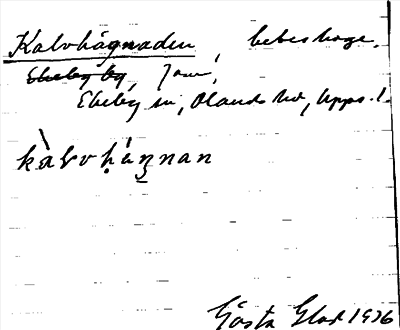 Kalvhägnaden, beteshage.
Ekeby by, Jan,
Ekeby sn, Olands hd, Upps. l.
kàlvhánnan
Gösta Glad 1936